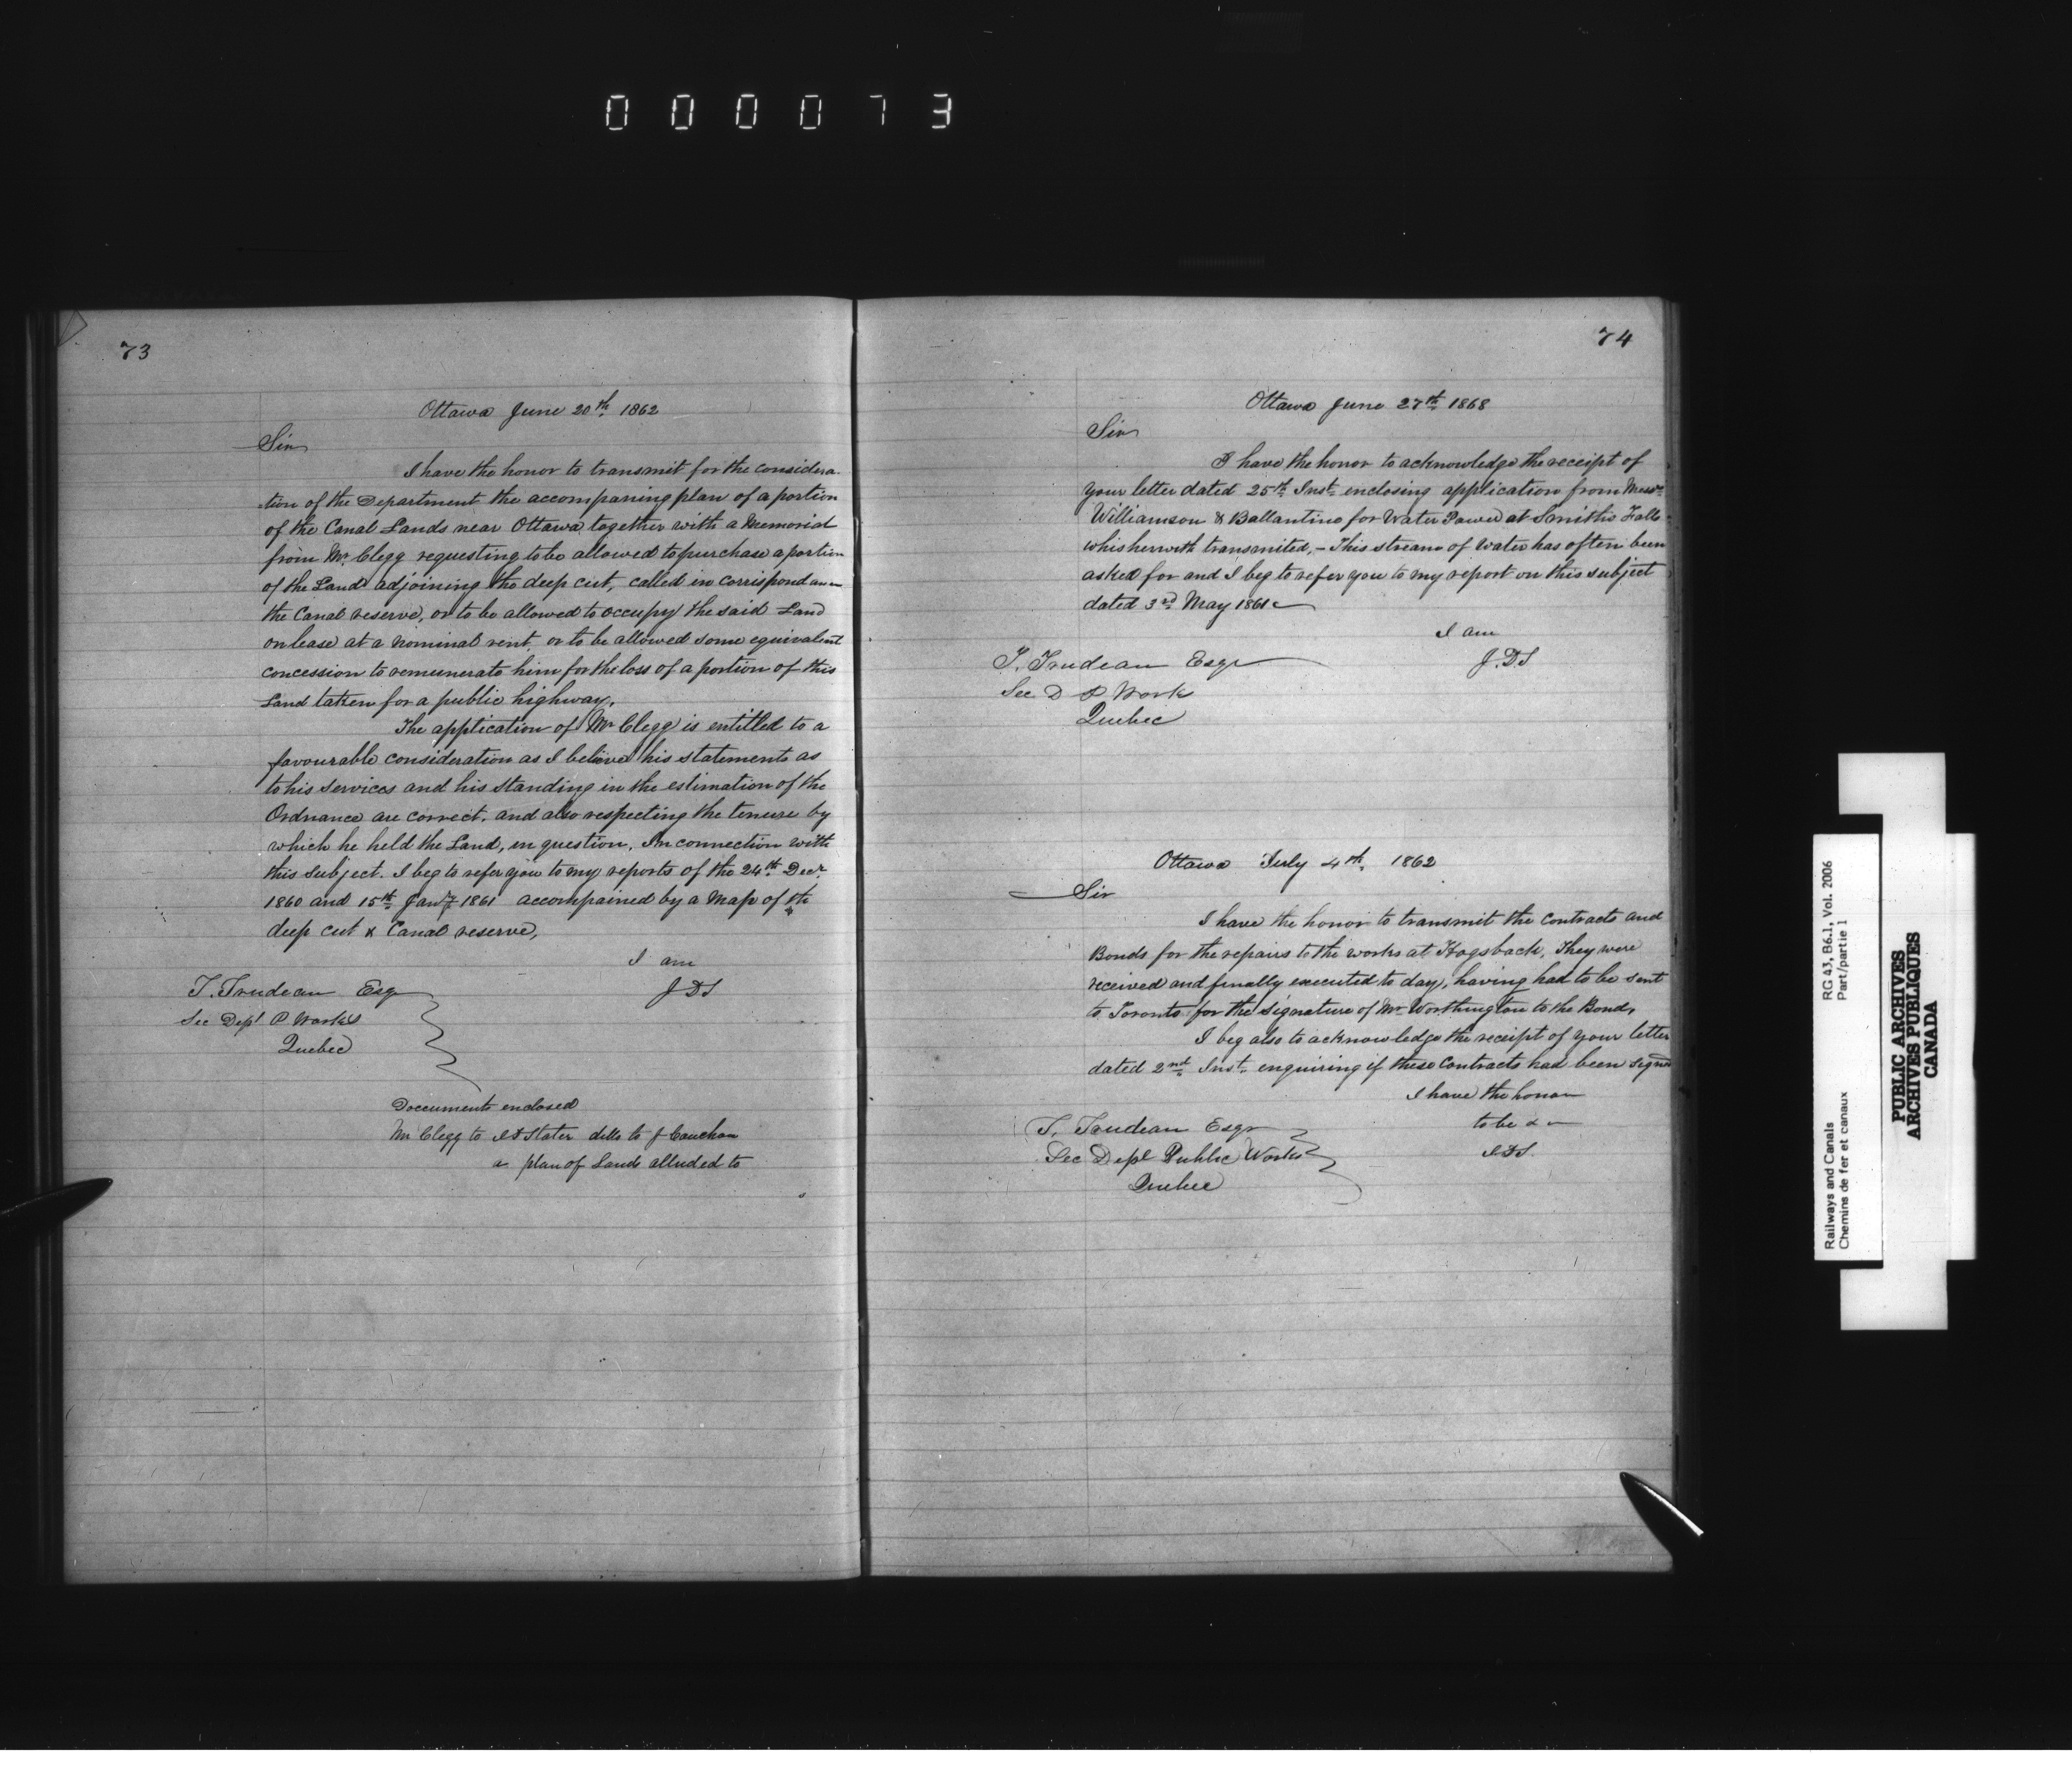 000073
73
Ottawa June 20th 1862
Sir
I have the honor to transmit for the considera
tion of the Department the accompaning plan of a portion
of the Canal Lands near Ottawa together with a Memorial
from Mr. Clegg requesting to be allowed to purchase a portion
of the Land adjoining the deep cut, called in correspondance
the Canal reserve, or to be allowed to occupy the said Land
on lease at a nominal rent, or to be allowed some equivalent
concession to remunerate him for the loss of a portion of this
Land taken for a public highway.
The application of Mr Clegg is entitled to a
favourable consideration as I believe his statements as
to his services and his standing in the estimation of the
Ordnance are correct. and also respecting the tenure by
which he held the Land, in question, In connection with
this subject. I beg to refer you to my reports of the 24th Decr
1860 and 15th Jany 1861 accompained by a Map of the
deep cut & Canal reserve,
I am
JDS
T. Trudeau Esqr
Sec Dept P Works
Quebec
Documents enclosed
Mr Clegg to JDSlater ditto to J Cauchon
a plan of Lands alluded to
74
Ottawa June 27th 1868
Sir
I have the honor to acknowledge the receipt of
your letter dated 25th Inst. enclosing application from Messrs
Williamson & Ballantine for Water Power at Smiths Falls
whis herwith transmited, – This stream of Water has often been
asked for and I beg to refer you to my report on this subject
dated 3rd May 1861
I am
J.D.S
T. Trudeau Esqr
Sec D P Work
Quebec
Ottawa July 4th 1862
Sir
I have the honor to transmit the Contracts and
Bonds for the repairs to the works at Hogsback, They were
received and finally executed to day, having had to be sent
to Toronto for the signature of Mr Worthington to the Bond,
I beg also to acknowledge the receipt of your letter
dated 2nd Inst. enquiring if these Contracts had been signed
I have the honor
to be &
JDS.
T. Trudeau Esqr
Sec Dept Public Works
Quebec
Railways and Canals RG 43, B6.1, Vol. 2006
Chemins de fer et canaux Part/partie 1
PUBLIC ARCHIVES
ARCHIVES PUBLIQUES
CANADA